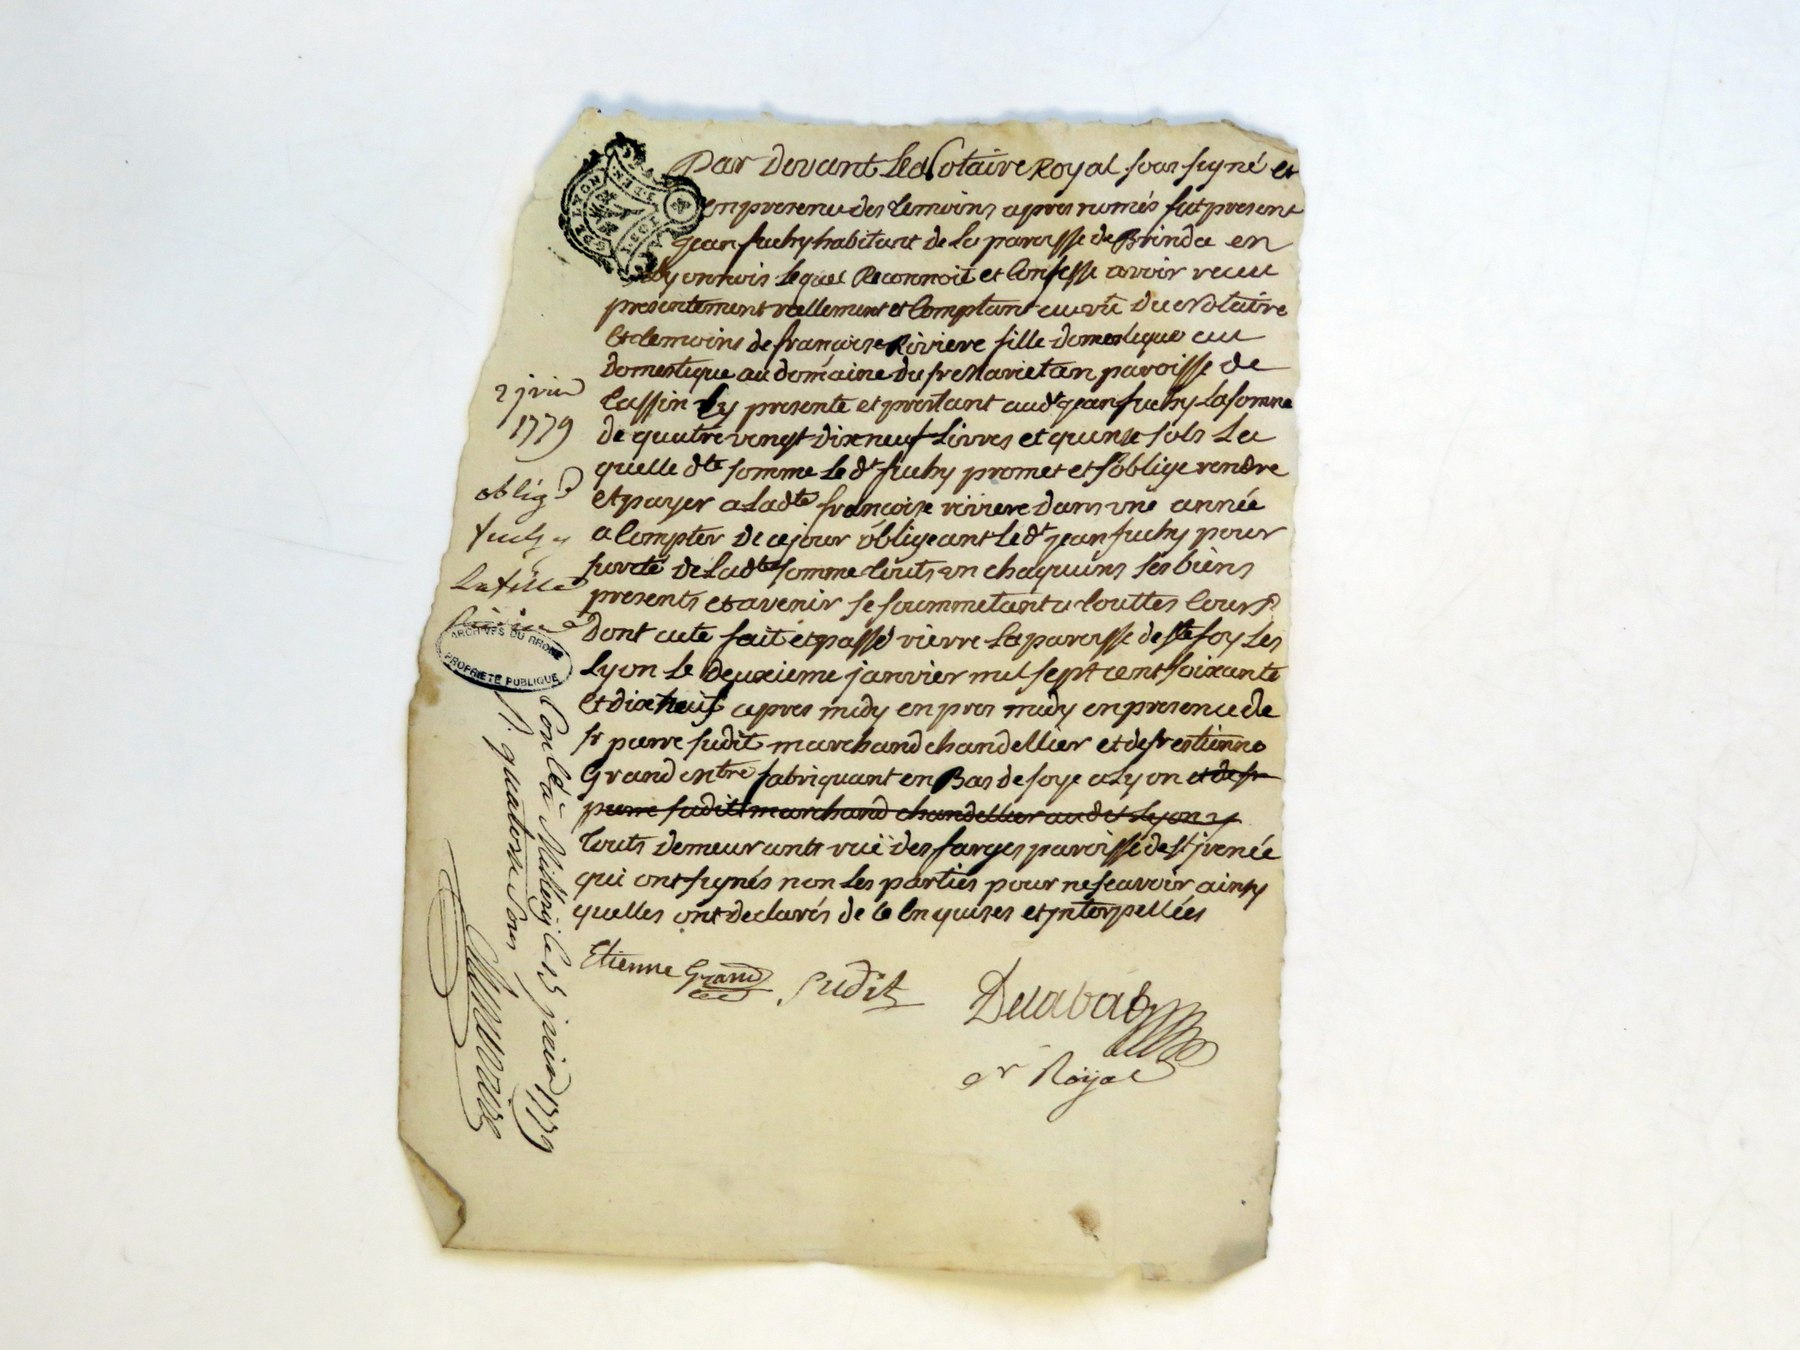 Par Devant Le Notaire Royal sous signé et
en presence des temoins apres només fut present
jean fuchy habitant de la paroisse de Brinda en
Lyonnois lequel Reconnoit et Confesse avoir receu
presentement reellement et Comptant au vu du Notaire
Et temoins de françoise Riviere fille domestique au
domestique au domaine du sr paroisse de
Cassin Cy presente et prestant audt jean fuchy La somme
de quatre vengt dix neuf Livres et quinse sols La
quelle dte somme Le dt fuchy promet et s'oblige rendre
et payer a Ladte françoise riviere dans une année
a Compter de ce jour obligeant Le dt jean fuchy pour
sureté de Ladte somme touts en chaquuns ses biens
presents et avenir se soummetant a touttes Cours
Dont acte fait et passé La paroisse de ste foy Les
Lyon Le deuxieme janvier mil sept cent soixante
et dix neuf apres midy en presence de
sr pierre sudit marchand chandellier et de sr estienne
Grand mtre fabriquant en Bas de soye a Lyon et de sr
pierre sudit marchand chandellier audit Lyon y
touts demeurants ruë des farges paroisse de st irenée
qui ont signés non Les parties pour ne scavoir ainsy
quelles ont declarés de Ce Enquises et jnterpellées
Etienne Grand Sudit Delabat
nr Royal
2 jvier
1779
obligon
fuchy
La fille
Riviere
ARCHIVES DU RHONE
PROPRIETE PUBLIQUE
Conlé a Millery le 15 jvier 1779
R. quatorse sous
GEN. DE LYON